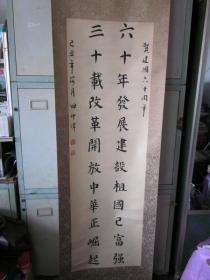 賀建國六十周年
六十年發展建設祖國已富强
三十載改革開放中華正崛起
己丑年荷月 田中偉